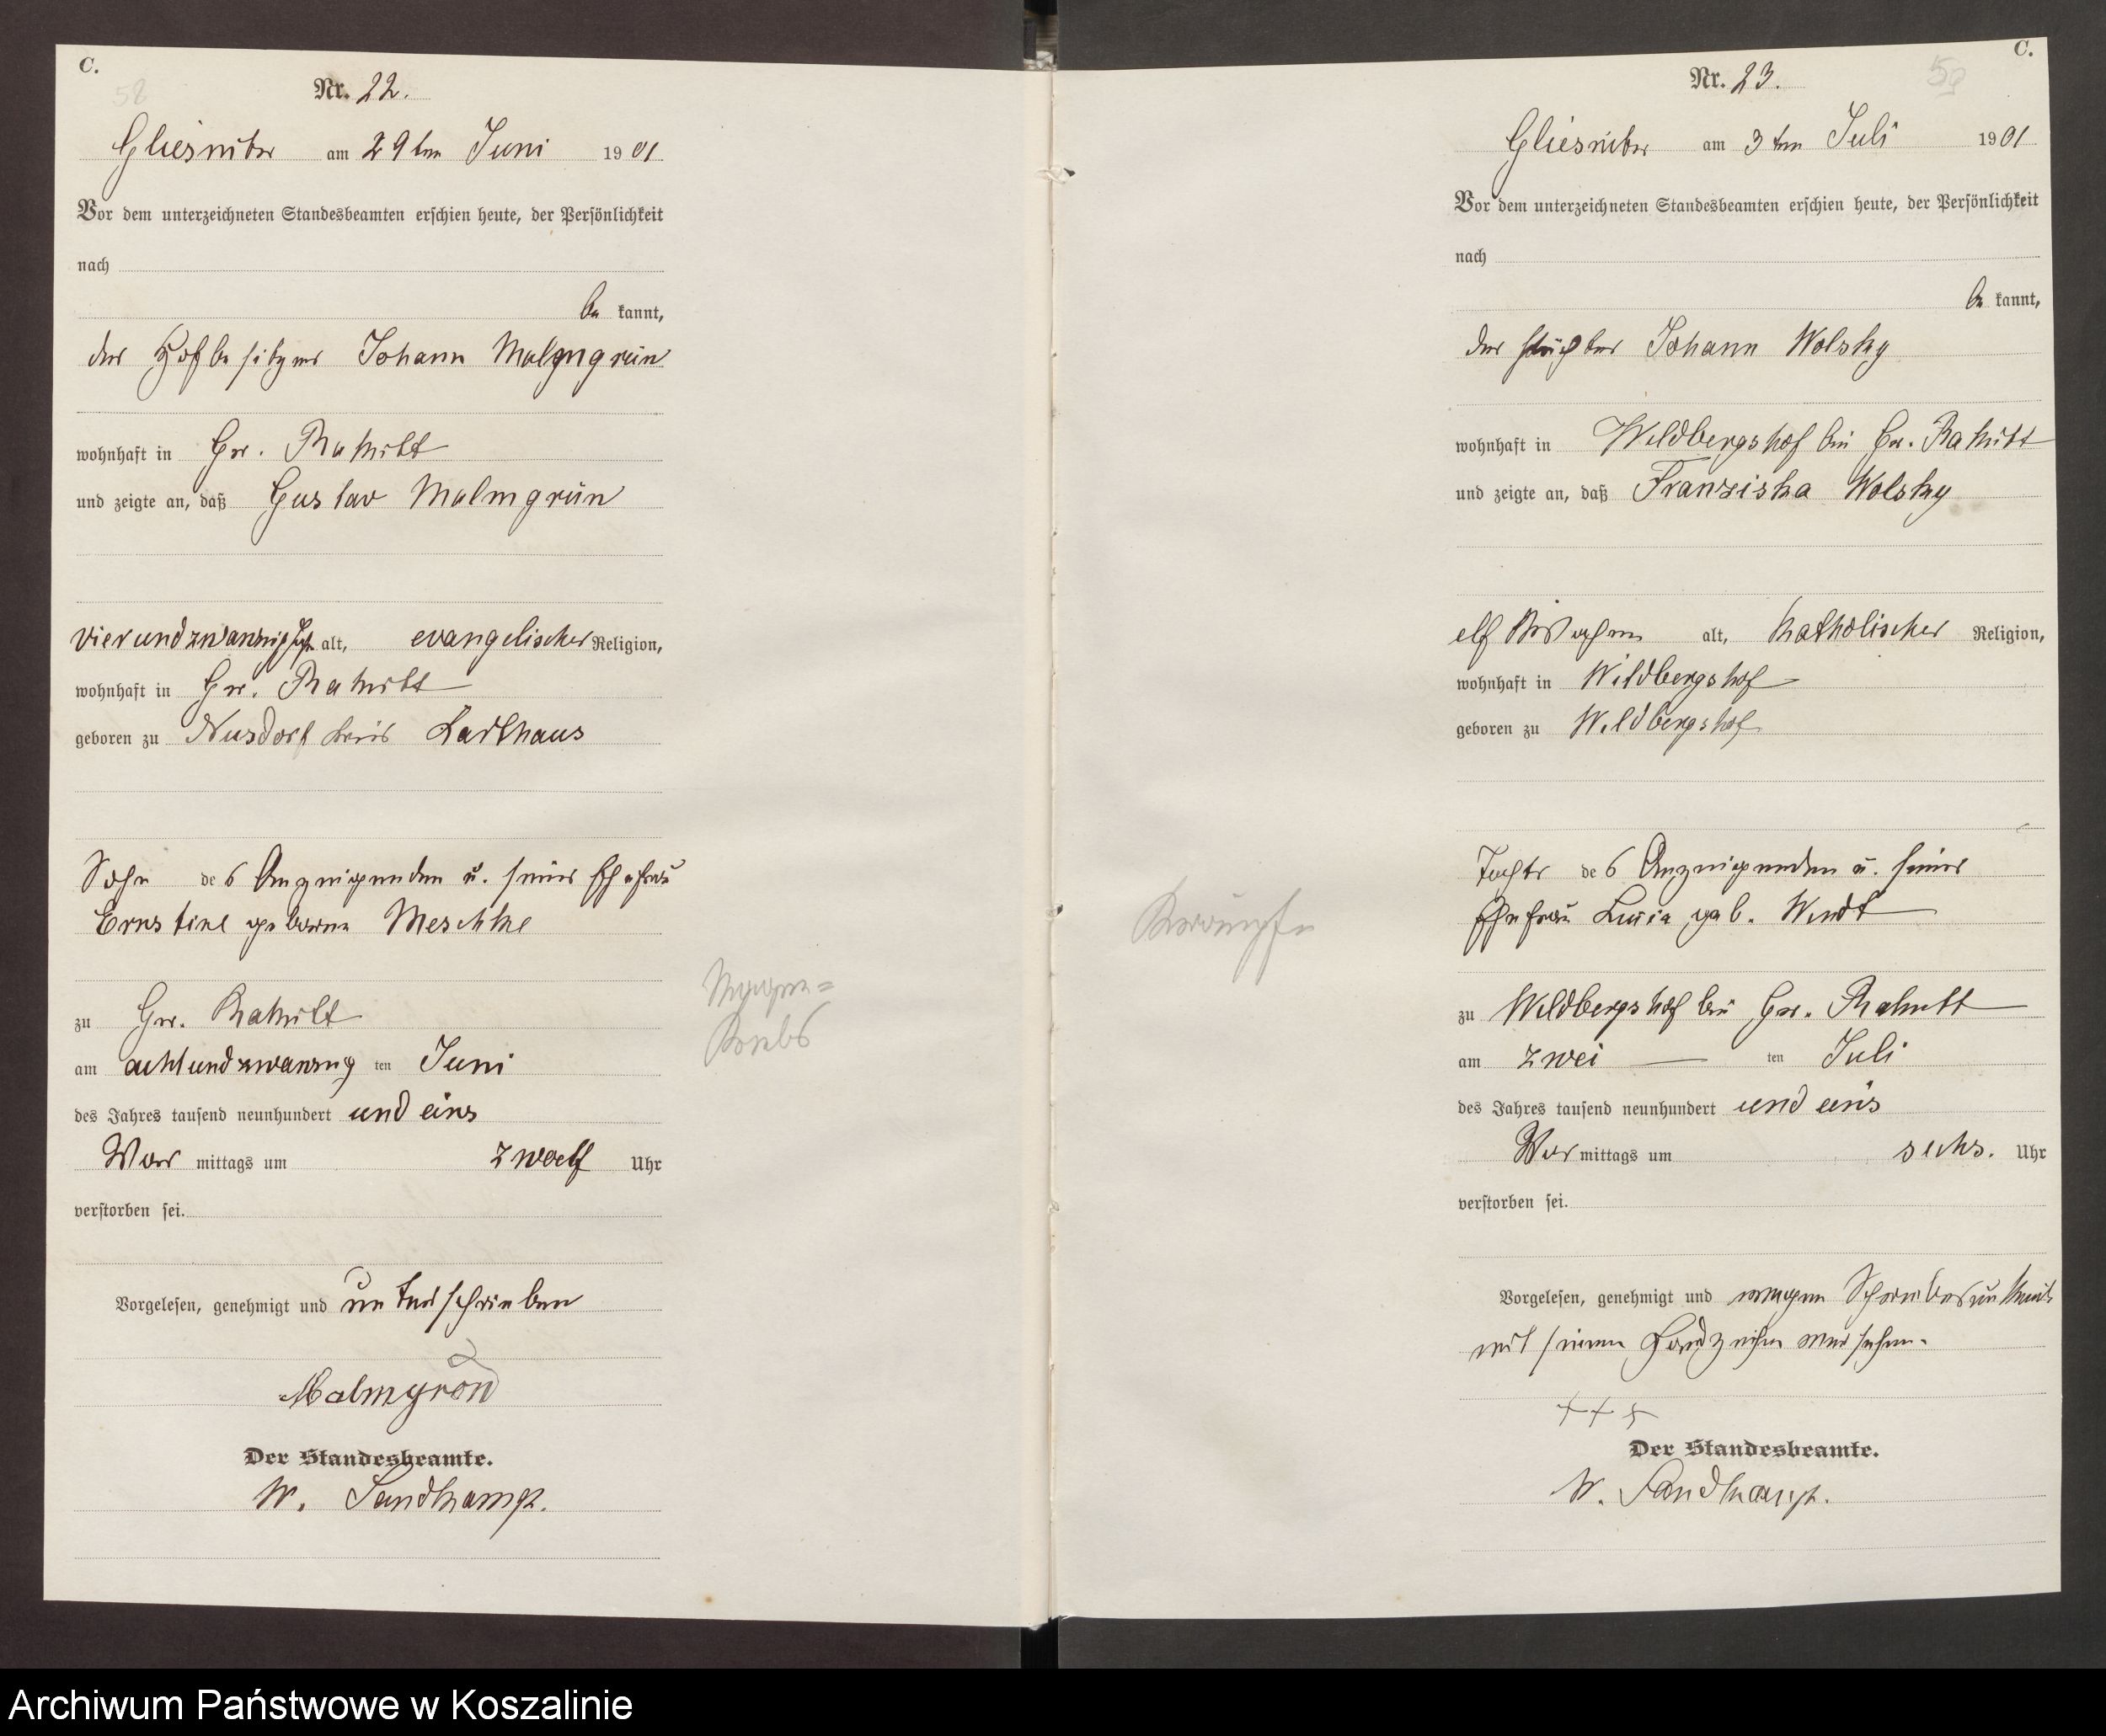 C.
58
Nr. 22.
Gliesnitz am 29ten Juni 1901
Vor dem unterzeichneten Standesbeamten erschien heute, der Persönlichkeit
nach
be kannt,
der Hofbesitzer Johann Malmgrün
wohnhaft in Gr. Rakitt
und zeigte an, daß Gustav Malmgrün
vierundzwanzig Jahre alt, evangelischer Religion,
wohnhaft in Gr. Rakitt
geboren zu Nusdorf Kreis Karthaus
Sohn des Anzeigenden u. seiner Ehefrau
Ernstine geborene Meschke
zu Gr. Rakitt
am achtundzwanzig ten Juni
des Jahres tausend neunhundert und eins
Vor mittags um zwoelf Uhr
verstorben sei.
Vorgelesen, genehmigt und unterschrieben
Malmgrön
Der Standesbeamte.
W. Sandkamp.
Magen-
Krebs
C.
59
Nr. 23.
Gliesnitz am 3ten Juli 1901
Vor dem unterzeichneten Standesbeamten erschien heute, der Persönlichkeit
nach
be kannt,
der Johann Wolsky
wohnhaft in Wildbergshof bei Gr. Rakitt
und zeigte an, daß Franziska Wolsky
elf Wochen alt, katholischer Religion,
wohnhaft in Wildbergshof
geboren zu Wildbergshof
Tochter des Anzeigenden u. seiner
Ehefrau geb. Wendt
zu Wildbergshof bei Gr. Rakitt
am zwei ten Juli
des Jahres tausend neunhundert und eins
Vor mittags um sechs. Uhr
verstorben sei.
Vorgelesen, genehmigt und wegen Schreibensunkunde
mit seinem Handzeichen versehen.
+++
Der Standesbeamte.
W. Sandkamp.
Krämpfe
Archiwum Państwowe w Koszalinie